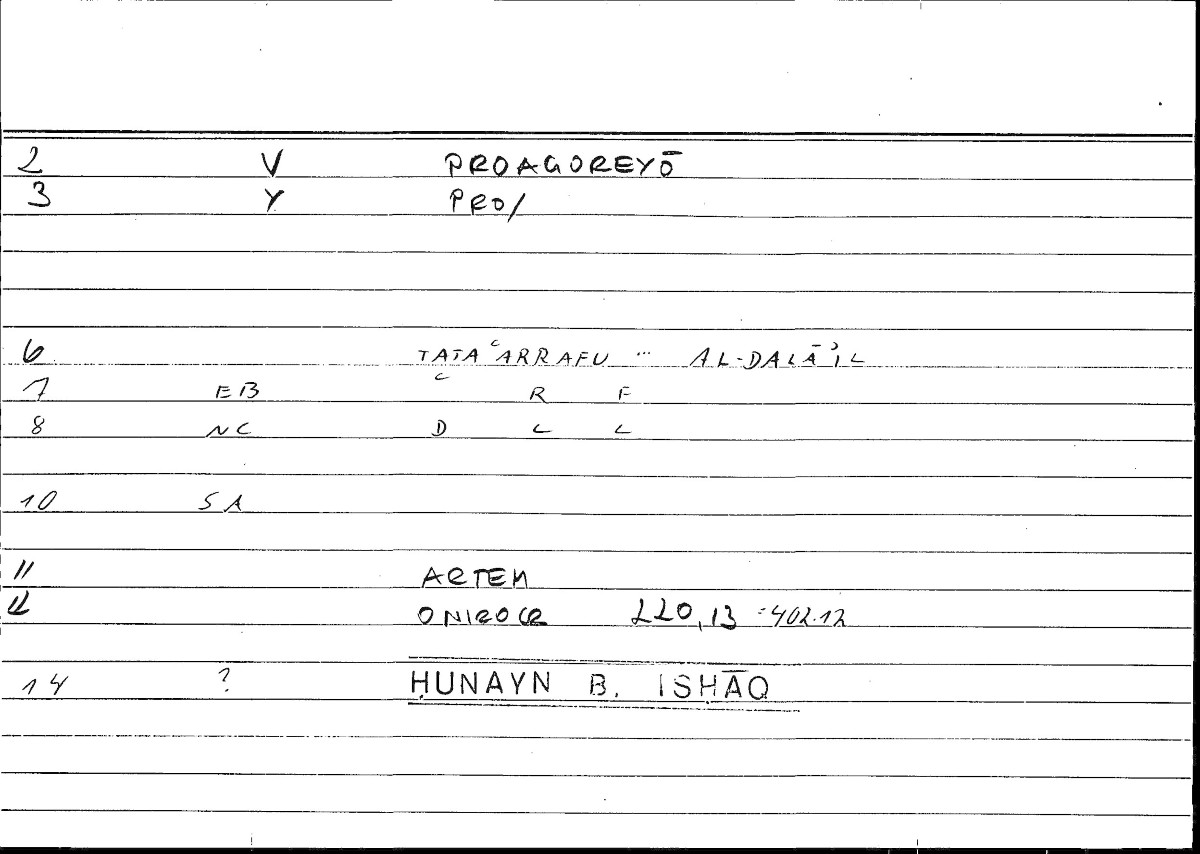 2 V PROAGOREYŌ
3 Y PRO/
6 TATAʿARRAFU ... AL-DALĀʾIL
7 EB ʿ R F
8 NC D L L
10 SA
11 ARTEM
12 ONIROCR 220,13 =402.12
14 ? ḤUNAYN B. ISḤĀQ